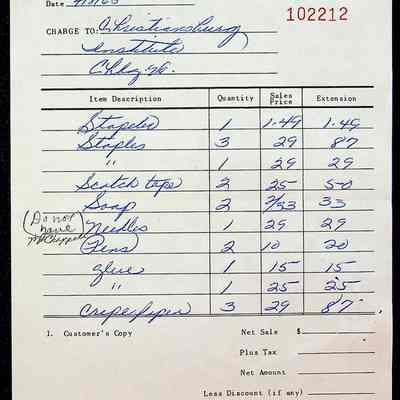 Date 4/1/65
102212
CHARGE TO: Christiansburg
Institute
Cbbg Va.
Item Description Quantity Sales Price Extension
Stapler 1 1.49 1.49
Staples 3 29 87
" 1 29 29
Scotch tape 2 25 50
Soap 2 2/33 33
(Do not have Needles 1 29 29
Pens 2 10 20
glue 1 15 15
" 1 25 25
Crepe paper 3 29 87
1. Customer's Copy Net Sale $
Plus Tax
Net Amount
Less Discount (if any)